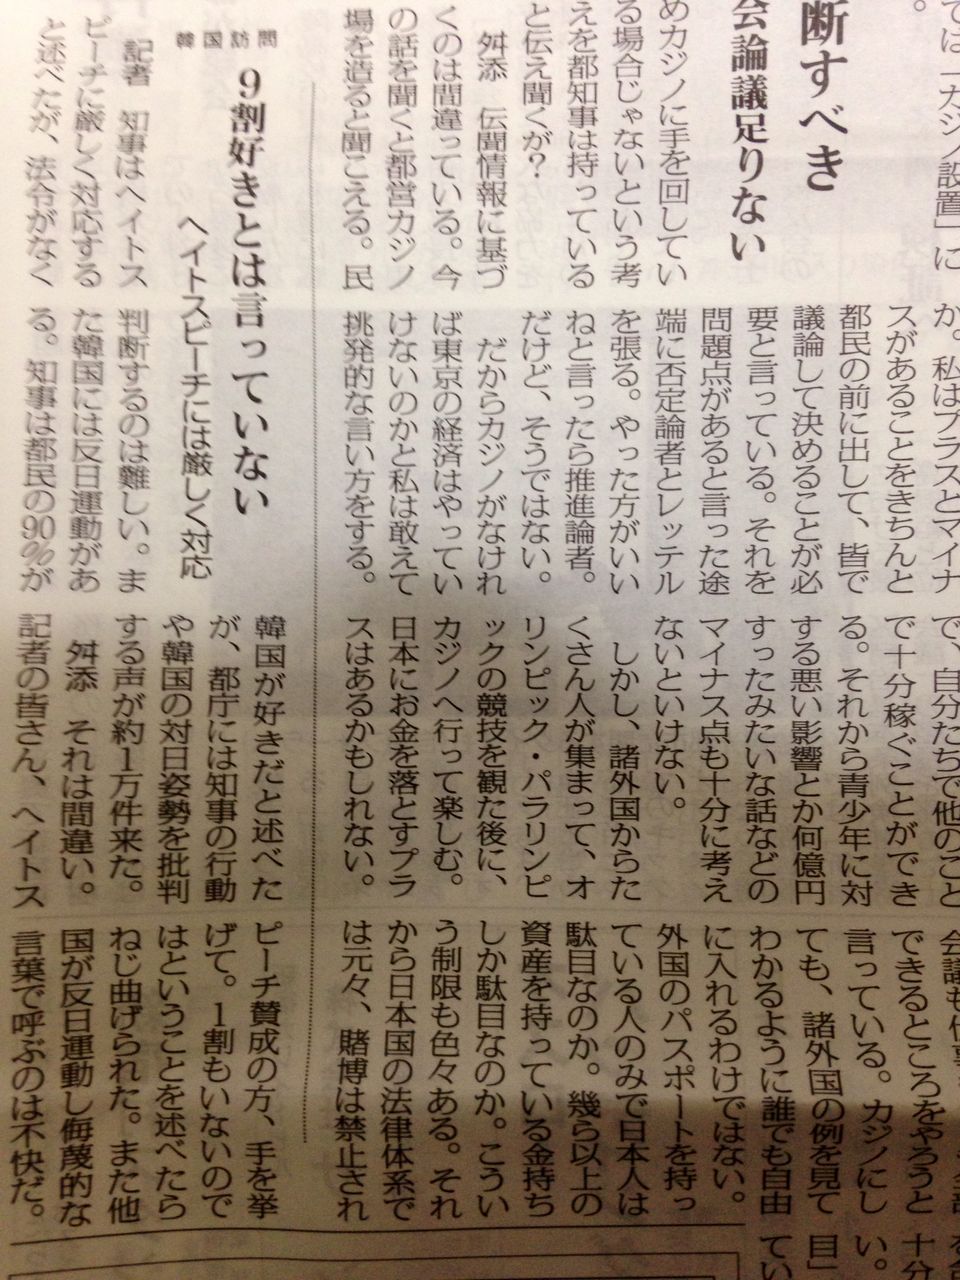 では「カジノ設置」に
。
断すべき
会論議足りない
めカジノに手を回してい
る場合じゃないという考
えを都知事は持っている
と伝え聞くが？
舛添　伝聞情報に基づ
くのは間違っている。今
の話を聞くと都営カジノ
場を造ると聞こえる。民
か。私はプラスとマイナ
スがあることをきちんと
都民の前に出して、皆で
議論して決めることが必
要と言っている。それを
問題点があると言った途
端に否定論者とレッテル
を張る。やった方がいい
ねと言ったら推進論者。
だけど、そうではない。
だからカジノがなけれ
ば東京の経済はやってい
けないのかと私は敢えて
挑発的な言い方をする。
で、自分たちで他のこと
で十分稼ぐことができ
る。それから青少年に対
する悪い影響とか何億円
すったみたいな話などの
マイナス点も十分に考え
ないといけない。
しかし、諸外国からた
くさん人が集まって、オ
リンピック・パラリンピ
ックの競技を観た後に、
カジノへ行って楽しむ。
日本にお金を落とすプラ
スはあるかもしれない。
できるところをやろうと
言っている。カジノにし
ても、諸外国の例を見て
わかるように誰でも自由
に入れるわけではない。
外国のパスポートを持っ
ている人のみで日本人は
駄目なのか。幾ら以上の
資産を持っている金持ち
しか駄目なのか。こうい
う制限も色々ある。それ
から日本国の法律体系で
は元々、賭博は禁止され
十分
い。
目」
てい
韓国訪問
９割好きとは言っていない
ヘイトスピーチには厳しく対応
記者　知事はヘイトス
ピーチに厳しく対応する
と述べたが、法令がなく
判断するのは難しい。ま
た韓国には反日運動があ
る。知事は都民の90％が
韓国が好きだと述べた
が、都庁には知事の行動
や韓国の対日姿勢を批判
する声が約１万件来た。
舛添　それは間違い。
記者の皆さん、ヘイトス
ピーチ賛成の方、手を挙
げて。１割もいないので
はということを述べたら
ねじ曲げられた。また他
国が反日運動し侮蔑的な
言葉で呼ぶのは不快だ。